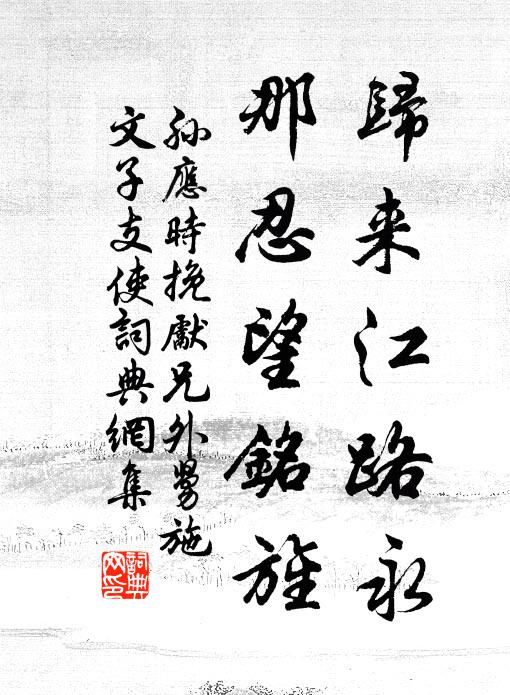 歸来江路永
那忍望銘旌
孫應時挽獻兄外舅施
文子支使詞典網集
詞典
网印